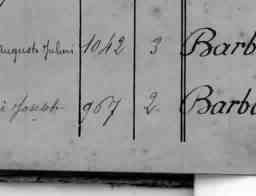 Augusto Juliani 1042 3 Barb
è Joseph 967 2 Barb